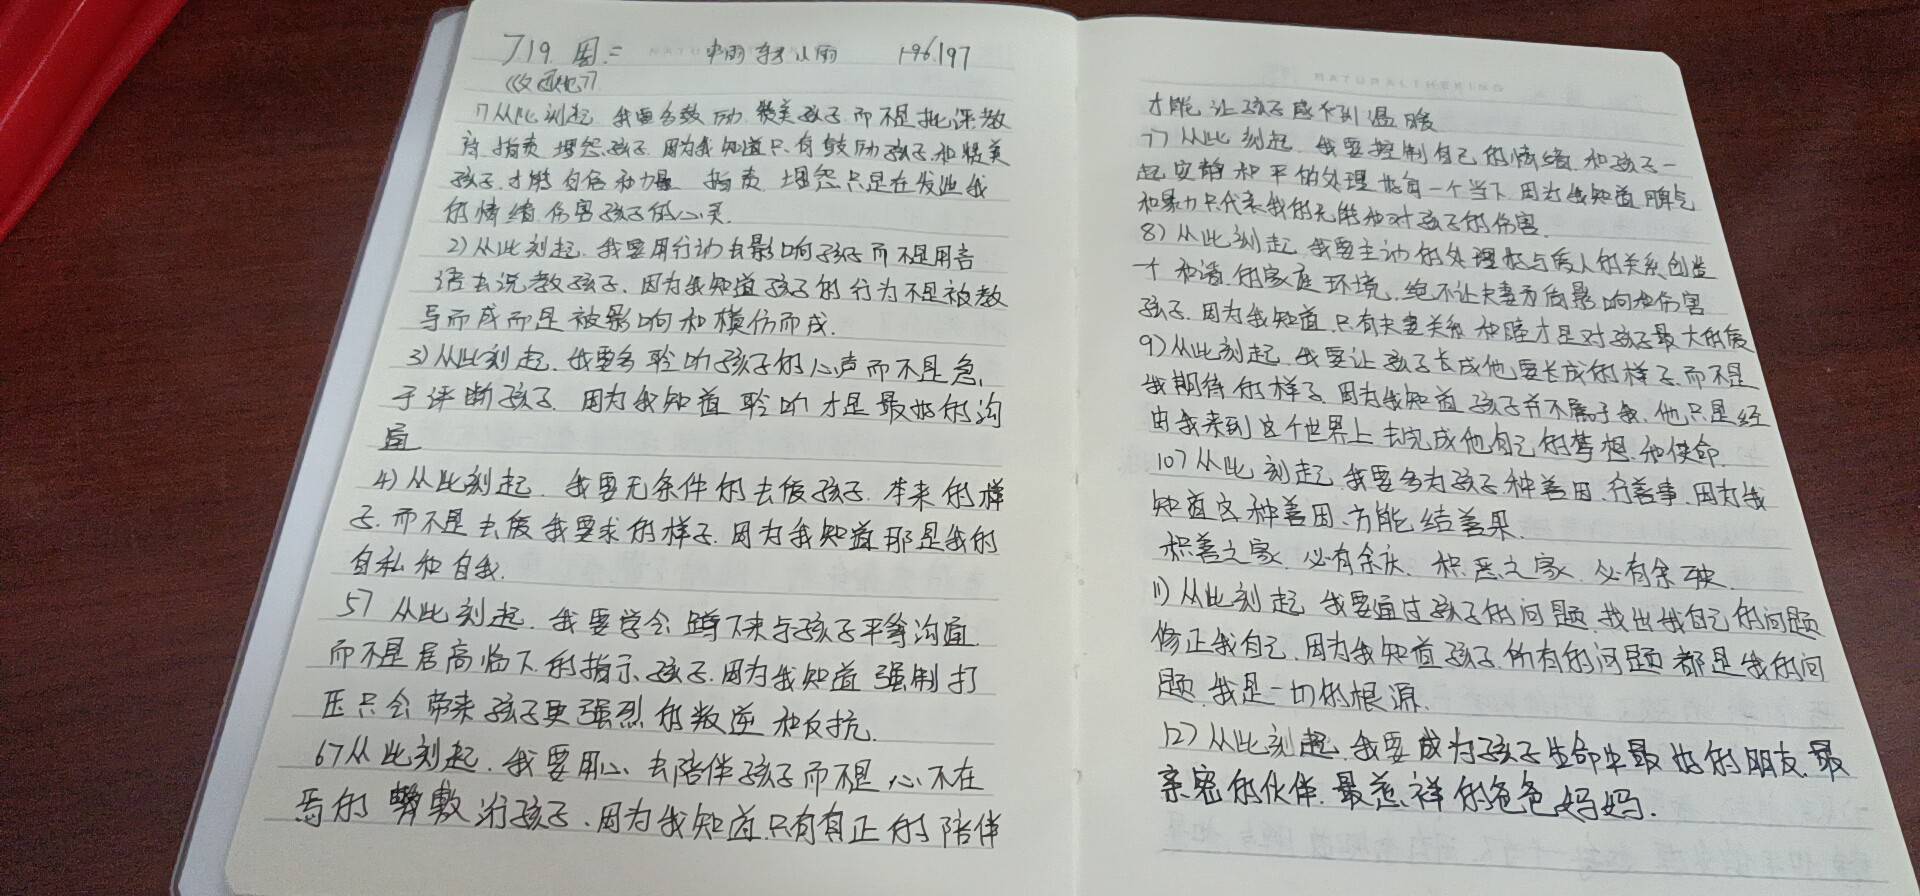 7.19 周二 中雨转小雨 196/197
1) 从此刻起 我要多鼓励 赞美孩子 而不是批评教
育 指责 埋怨孩子 因为我知道只有鼓励孩子和赞美
孩子 才能自信和力量 指责 埋怨只是在发泄我
的情绪 伤害孩子的心灵.
2) 从此刻起. 我要用行动去影响孩子而不是用言
语去说教孩子. 因为我知道孩子的行为不是被教
导而成而是被影响和模仿而成.
3) 从此刻起. 我要多聆听孩子的心声而不是急
于评断孩子 因为我知道聆听才是最好的沟
通
4) 从此刻起. 我要无条件的去爱孩子 本来的样
子. 而不是去爱我要求的样子. 因为我知道那是我的
自私和自我.
5) 从此刻起. 我要学会蹲下来与孩子平等沟通
而不是居高临下的指示孩子. 因为我知道强制打
压只会带来孩子更强烈的叛逆和反抗.
6) 从此刻起. 我要用心去陪伴孩子而不是心不在
焉的敷衍孩子. 因为我知道.只有真正的陪伴
NATURALTHEKING
才能让孩子感个到温暖
7) 从此刻起. 我要控制自己的情绪.和孩子一
起安静和平的处理好每一个当下 因为我知道脾气
和暴力只代表我的无能和对孩子的伤害.
8) 从此刻起 我要主动的处理好与爱人的关系创造
个和谐的家庭环境. 绝不让夫妻矛盾影响和伤害
孩子. 因为我知道.只有夫妻关系和睦才是对孩子最大的爱
9) 从此刻起. 我要让孩子长成他要长成的样子.而不是
我期待的样子. 因为我知道孩子并不属于我.他只是经
由我来到这个世界上去完成他自己的梦想和使命.
10) 从此刻起.我要多为孩子种善因.行善事.因为我
知道.这种善因.方能结善果.
积善之家 必有余庆. 积恶之家. 必有余殃.
11) 从此刻起 我要通过孩子的问题.找出我自己的问题
修正我自己. 因为我知道孩子所有的问题都是我的问
题. 我是一切的根源.
12) 从此刻起.我要成为孩子生命中最好的朋友.最
亲密的伙伴.最慈祥的爸爸妈妈.